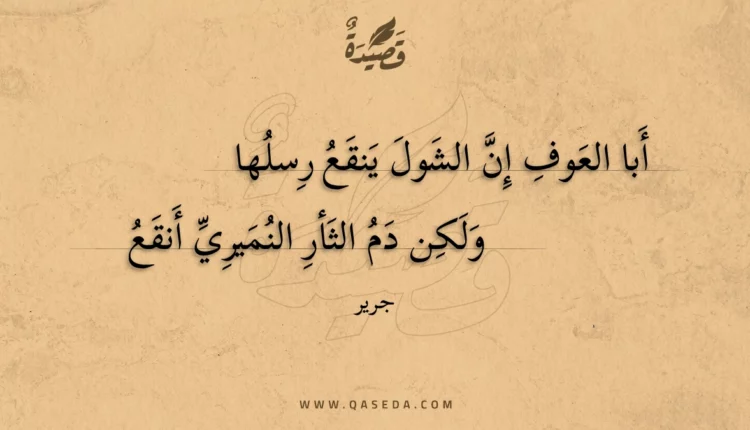 قَصِيْدَةٌ
أَبا العَوفِ إِنَّ الشَولَ يَنقَعُ رِسلُها
وَلَكِن دَمُ الثَأرِ النُمَيرِيِّ أَنقَعُ
جرير
WWW.QASEDA.COM